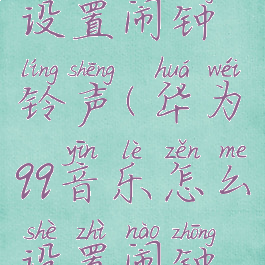 设置闹钟
líng shēng huá wéi
铃声(华为
yīn lè zěn me
99音乐怎么
shè zhì nào zhōng
设置闹钟